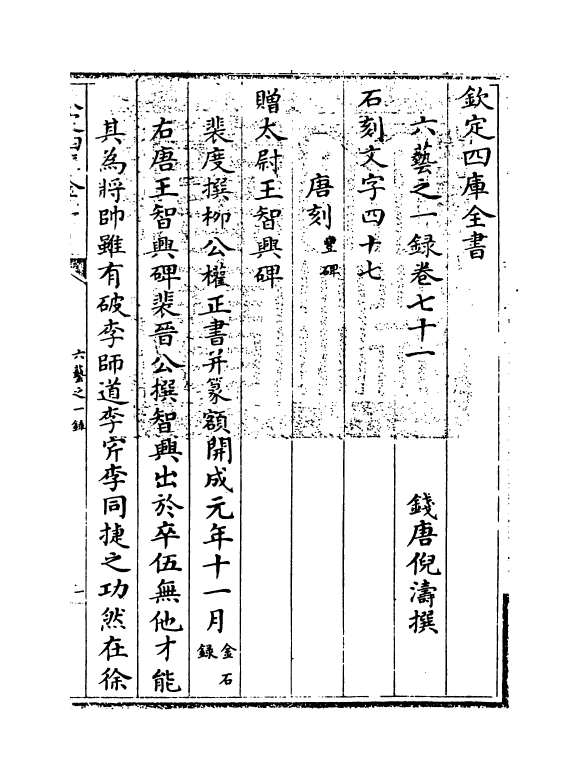 欽定四庫全書
六藝之一録卷七十一
錢唐倪濤撰
石刻文字四十七
唐刻豐碑
贈太尉王智興碑
裴度撰栁公權正書并篆額開成元年十一月金石録
右唐王智興碑裴晉公撰智興出於卒伍無他才能
其為將帥雖有破李師道李㝏李同捷之功然在徐
六藝之一録
一